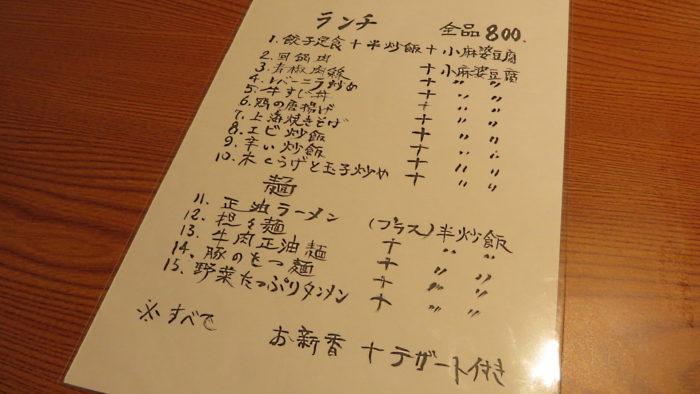 ランチ 全品 800.
1. 餃子定食 + 半炒飯 + 小麻婆豆腐
2. 回鍋肉 + 小麻婆豆腐
3. 青椒肉絲 + 〃 〃
4. レバーニラ炒め + 〃 〃
5. 牛すじ丼 + 〃 〃
6. 鶏の唐揚げ + 〃 〃
7. 上海焼きそば + 〃 〃
8. エビ炒飯 + 〃 〃
9. 辛い炒飯 + 〃 〃
10. 木くらげと玉子炒め + 〃 〃
麺
11. 正油ラーメン (プラス) 半炒飯
12. 担々麺 + 〃 〃
13. 牛肉正油麺 + 〃 〃
14. 豚のもつ麺 + 〃 〃
15. 野菜たっぷりタンメン
※ すべて お新香 + デザート付き